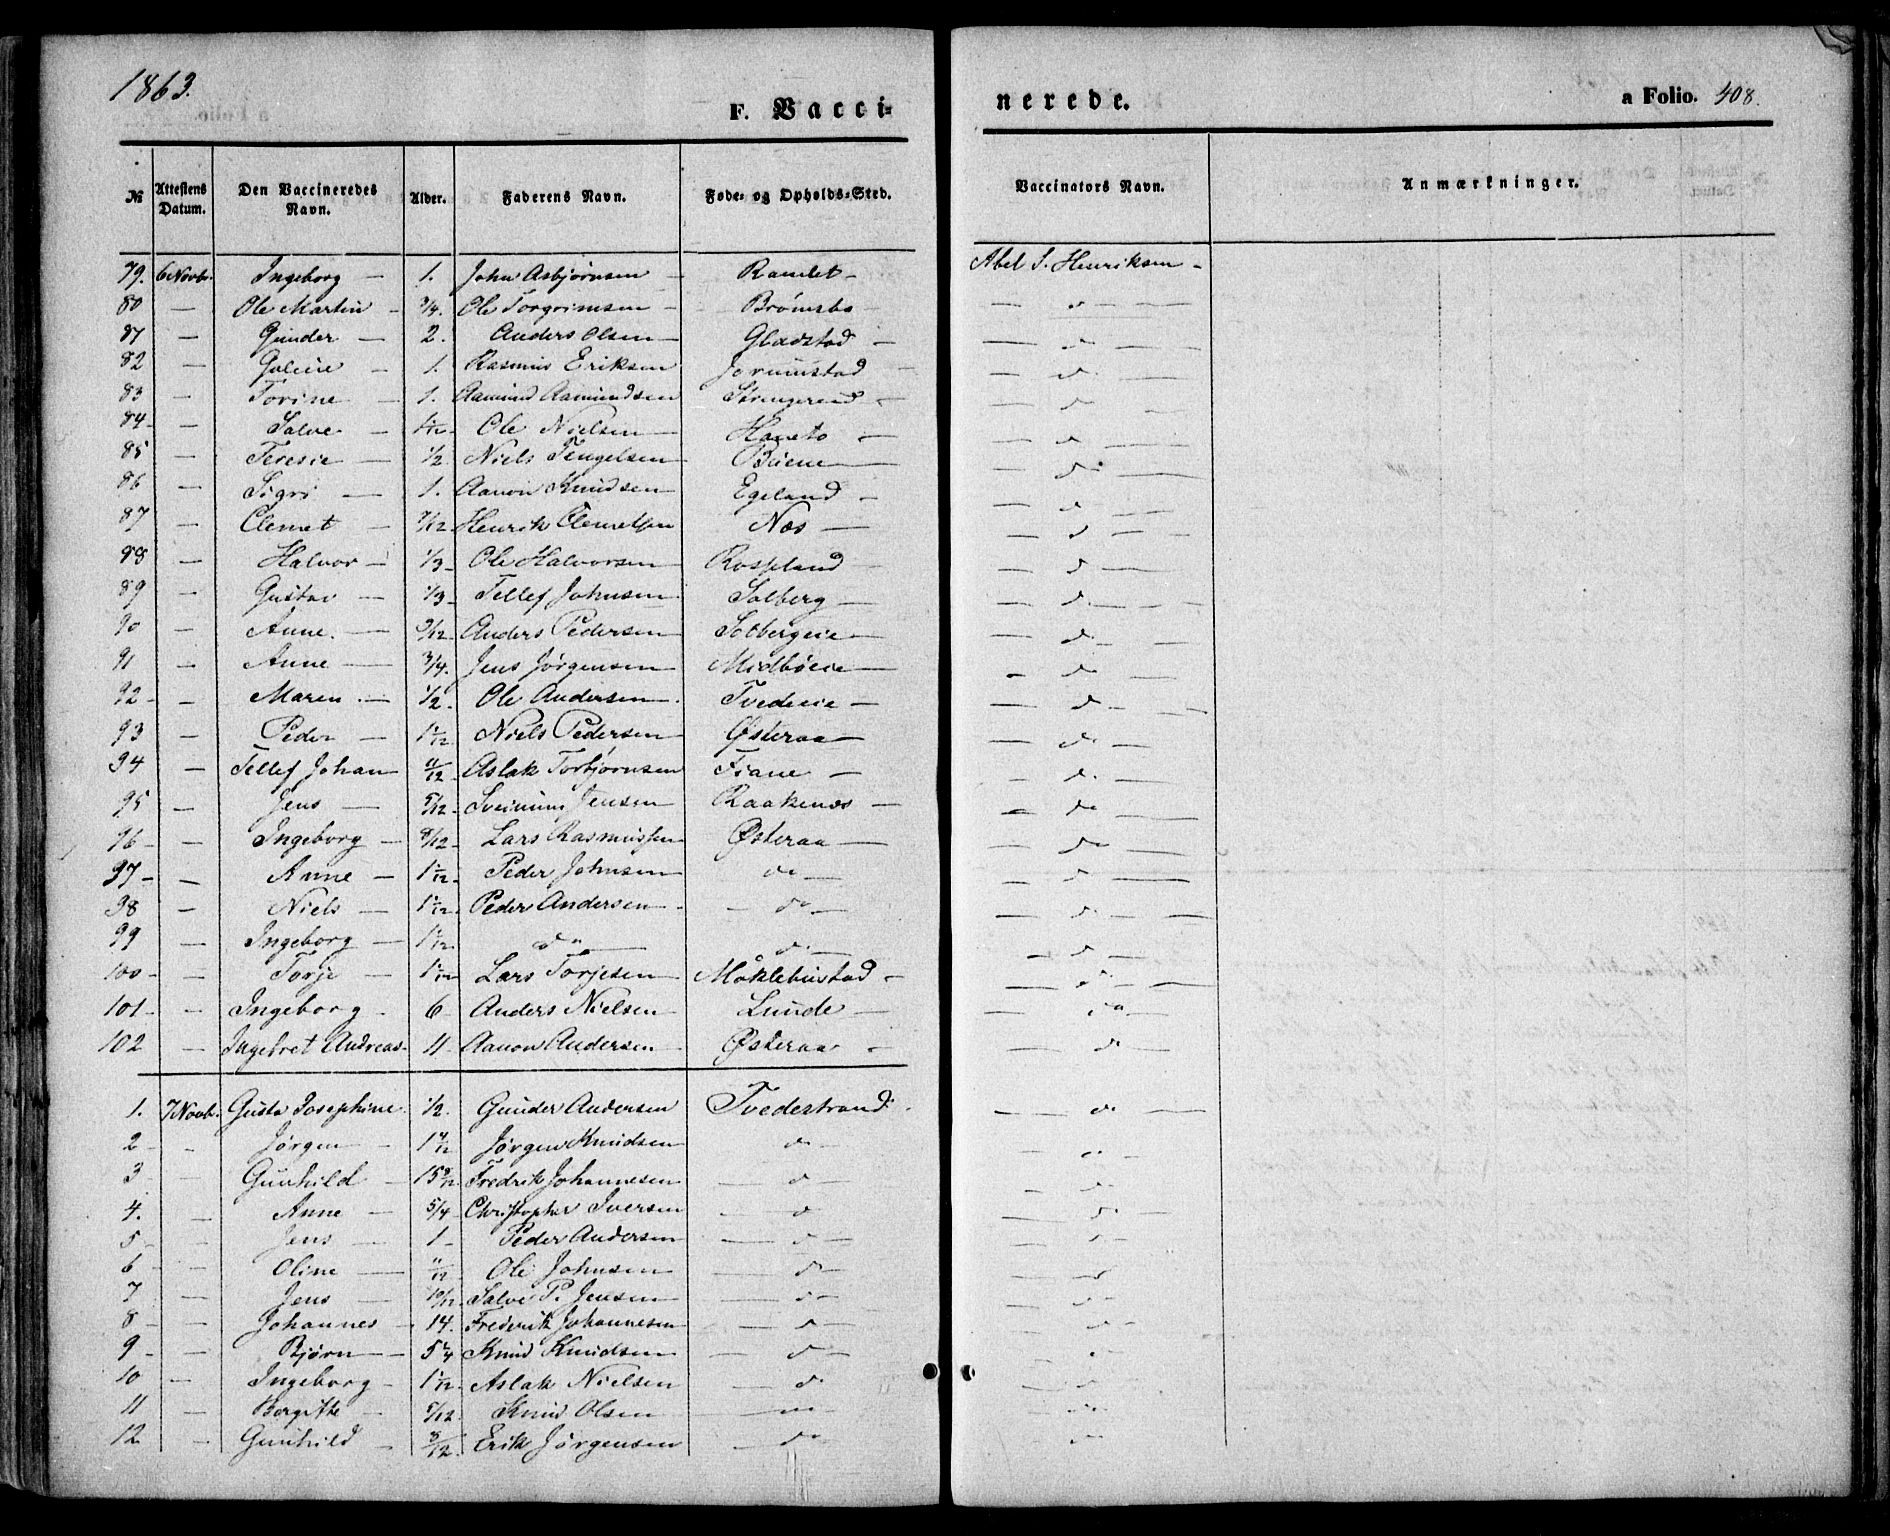 1863.
F. Vacci-
nerede.
a Folio. 408.
№ Attestens Datum. Den Vaccineredes Navn. Alder. Faderens Navn. Føde- og Opholds-Sted. Vaccinators Navn. Anmærkninger.
79. 6 Novb. Ingeborg — 1. John Asbjørnsen — Ramlet — Abel S. Henriksen —
80 — Ole Martin — 3/4. Ole Torgrimsen — Brømsbo — d
81 — Gunder — 2. Anders Olsen — Gladstad — do
82 — — 1. Rasmus Eriksen — d
83 — Torine — 1. Aamund Aamundsen — d
84 — Salve — Ole Nielsen — d
85 — Teresie — 1/2. Niels Tengelsen — d
86 — Sigri — 1. Aanon Knudsen — Egeland — d
87 — Clemet — 7/12 Henrik Clemetsen Næs — d
88 — Halvor — 1/3 — Ole Halvorsen — Rossland — d
89 — Gustav — 1/3 — Tellef Johnsen Solberg — d
90 — Anne. — 9/12 Anders Pedersen — Solbergeie — d
91 — Anne — 3/4. Jens Jørgensen — Midbøeie — do
92 — Maren — 1/2 Ole Andersen — Tvedeeie — d
93 — Peder — 1 1/12 Niels Pedersen — Østeraa — do
94 — Tellef Johan 11/12 Aslak Torbjørnsen Fiane — d
95 — Jens — 5/12 Jensen — Raakenæs — do
96 — Ingeborg — 8/12 Lars Rasmussen Østeraa — do
97 — Anne — 1 1/12 Peder Johnsen — do — d
98 — Niels — 1 1/12 Peder Andersen — do — d
99 — Ingeborg — 1 1/12 do — d — d
100 — Torje — 1 1/12 Lars Torjesen — Møklebustad — d
101 — Ingeborg — 6 — Anders Nielsen — Lunde — do
102 — Ingebret Andreas — 11 — Aanon Andersen — Østeraa — do
1. 7 Novb. Gusta Josephine 1/2. Gunder Andersen Tvedestrand — do
2 — Jørgen — Jørgen Knudsen — do — do
3 — Gunhild — Fredrik Johannesen — d — do
4. — Anne — 5/4 Christopher Iversen — d — d
5 — Jens — 1 — Peder Andersen — d — d
6 — Oline — 11/12 Ole Johnsen — do — do
7 — Jens — 10/12 Salve P. Jensen — do — do
8 — Johannes — 14. Frederik Johannesen — d — d
9 — Bjørn — Knud Knudsen — d
10 — Ingeborg — 1 1/12 Aslak Nielsen — d — d
11 — Borgitte — Knud Olsen
12 — Gunhild — 8/12. Erik Jørgensen — do